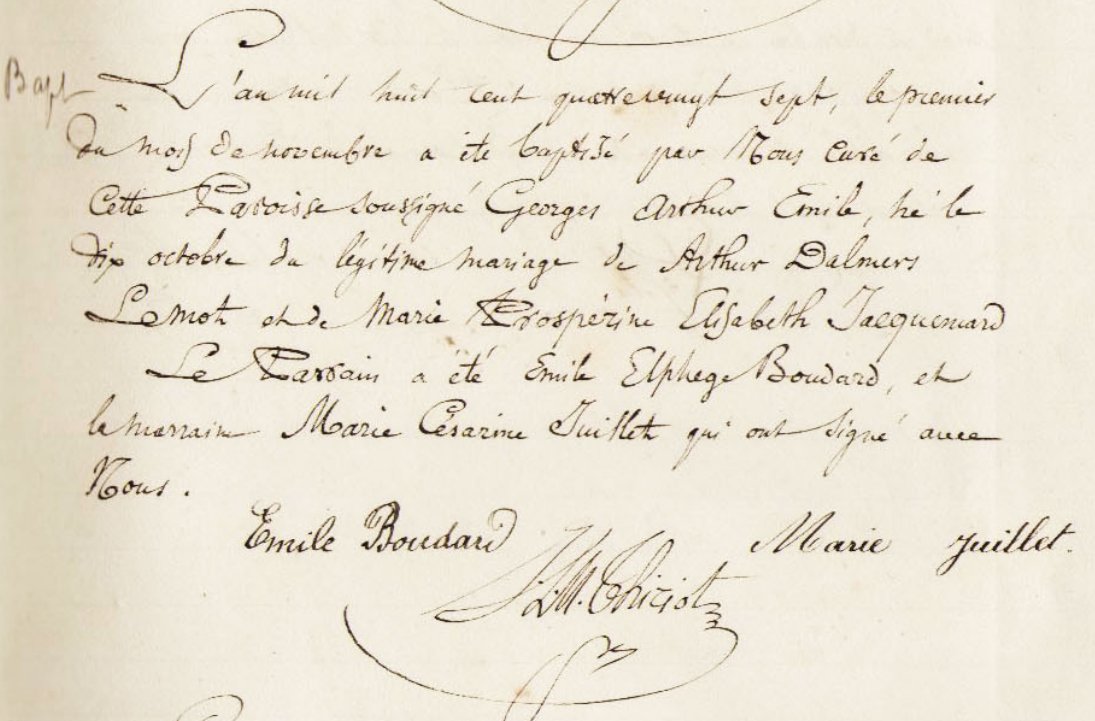 Bapt
L'an mil huit cent quatrevingt sept, le premier
du mois de novembre a été baptisé par Nous curé de
Cette Paroisse soussigné Georges Arthur Emile, né le
dix octobre du légitime mariage de Arthur Dalmers
Lemoh et de Marie Prospérine Elisabeth Jacquemard
Le Parrain a été Emile Elphege Boudard, et
la marraine Marie Césarine Juillet qui ont signé avec
Nous.
Emile Boudard Marie Juillet.